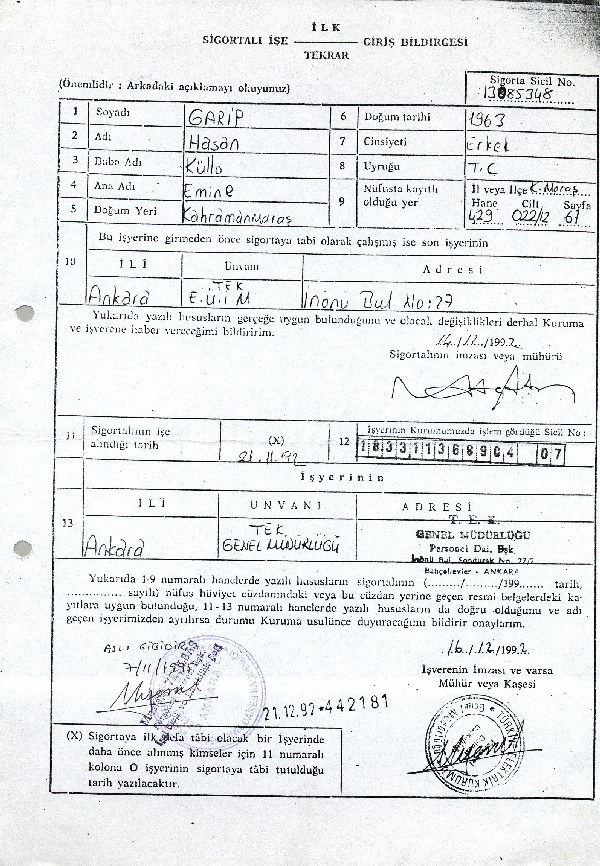 İLK
SİGORTALI İŞE ———— GİRİŞ BİLDİRGESİ
TEKRAR
(Önemlidir : Arkadaki açıklamayı okuyunuz)
Sigorta Sicil No.
13085348
1 Soyadı GARİP 6 Doğum tarihi 1963
2 Adı Hasan 7 Cinsiyeti Erkek
3 Baba Adı Küllo 8 Uyruğu T.C
4 Ana Adı Emine 9 Nüfusta kayıtlı olduğu yer İl veya İlçe K.Maraş
5 Doğum Yeri Kahramanmaraş Hane Cilt Sayfa
429 022/2 61
Bu işyerine girmeden önce sigortaya tabi olarak çalışmış ise son işyerinin
10 İLİ Unvanı Adresi
Ankara TEK E.Ü.İ M İnönü Bul No:27
Yukarıda yazılı hususların gerçeğe uygun bulunduğunu ve olacak değişiklikleri derhal Kuruma
ve işverene haber vereceğimi bildiririm.
16/12/1992
Sigortalının imzası veya mühürü
11 Sigortalının işe alındığı tarih (X) 12 İşyerinin Kurumumuzda işlem gördüğü Sicil No :
21.11.92
İşyerinin
13 İLİ UNVANI ADRESİ
Ankara TEK. GENEL MÜDÜRLÜĞÜ
T. E. K.
GENEL MÜDÜRLÜĞÜ
Personel Dai. Bşk.
İnönü Bul. No. 27/2
Bahçelievler - ANKARA
Yukarıda 1-9 numaralı hanelerde yazılı hususların sigortalının (......../......../199...... tarih,
............... sayılı) nüfus hüviyet cüzdanındaki veya bu cüzdan yerine geçen resmi belgelerdeki ka-
yıtlara uygun bulunduğu, 11-13 numaralı hanelerde yazılı hususların da doğru olduğunu ve adı
geçen işyerimizden ayrılırsa durumu Kuruma usulünce duyuracağını bildirir onaylarım.
ASLI GİBİDİR
16/12/1992
İşverenin İmzası ve varsa
Mühür veya Kaşesi
21.12.92*442181
(X) Sigortaya ilk defa tâbi olacak bir İşyerinde
daha önce alınmış kimseler için 11 numaralı
kolona O işyerinin sigortaya tâbi tutulduğu
tarih yazılacaktır.